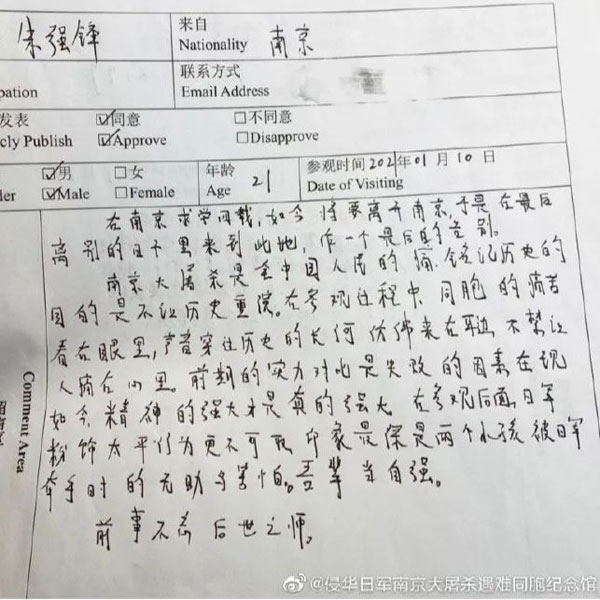 朱强锋
来自
Nationality
南京
联系方式
Email Address
pation
发表 ☑同意 □不同意
cly Publish ☑Approve □Disapprove
☑男 □女 年龄 参观时间 2021年01月10日
der ☑Male □Female Age 21 Date of Visiting
在南京求学四载,如今将要离开南京,于是在最后
离别的日子里来到此地,作一个最后的告别。
南京大屠杀是全中国人民的痛,铭记历史的
目的是不让历史重演。在参观过程中,同胞的痛苦
看在眼里,声音穿过历史的长河仿佛来在耳边,不禁让
人痛在心里。前期的实力对比是失败的因素在现
如今,精神的强大才是真的强大。在参观后面,日军
粉饰太平行为更不可取,印象最深是两个小孩被日军
牵手时的无助与害怕。吾辈当自强。
前事不忘 后世之师。
Comment Area
@侵华日军南京大屠杀遇难同胞纪念馆